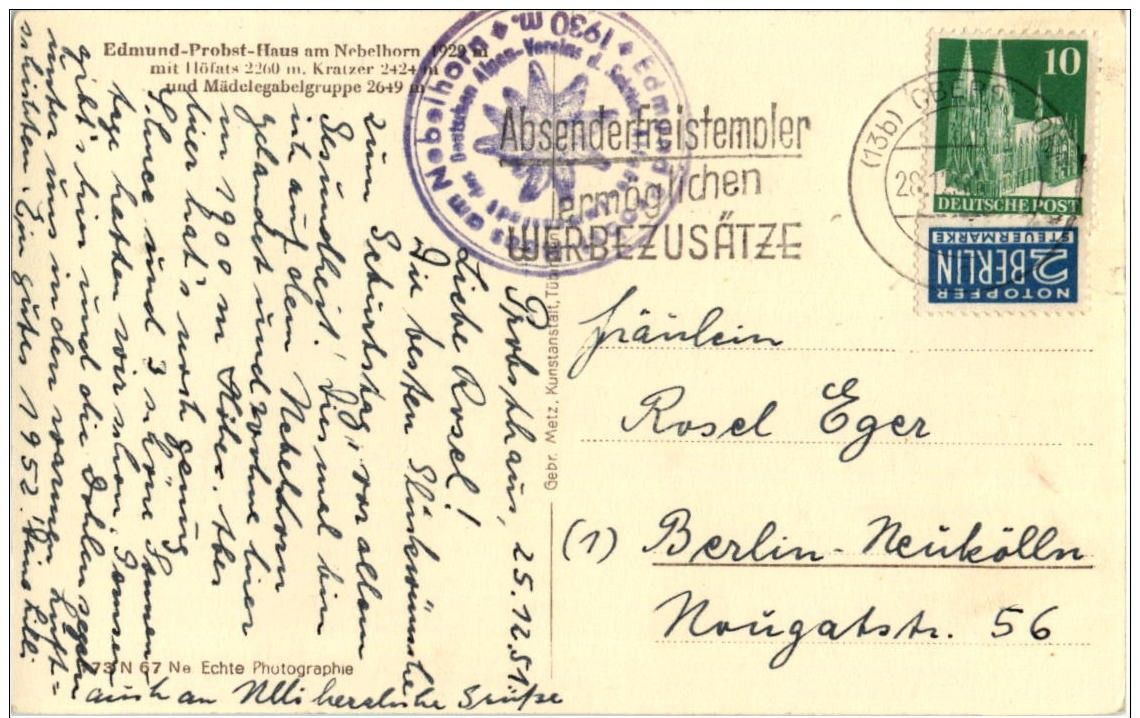 Edmund-Probst-Haus am Nebelhorn 1929 m
mit Höfats 2260 m, Kratzer 2424 m
und Mädelegabelgruppe 2649 m
1930 m.
Edmund Probst-Haus am Nebelhorn
des Deutschen Alpen-Vereins
Absenderfreistempler
ermöglichen
WERBEZUSÄTZE
(13b) OBERSTDORF
10
DEUTSCHE POST
NOTOPFER
2 BERLIN
STEUERMARKE
Probsthaus, 25.12.51
Liebe Rosel!
Die besten Glückwünsche
zum Geburtstag, vor allem
Gesundheit! Diesmal bin
ich auf dem Nebelhorn
gelandet und wohne hier
in 1900 m Höhe. Aber
hier hat's noch genug
Schnee und 3 schöne Sonnen
tage hatten wir schon. Gemsen
gibt's hier und die Dohlen segeln
unter uns in den warmen Luft=
schichten. Ein gutes 1952! Deine Lilli
auch an Illi herzliche Grüße
Gebr. Metz, Kunstanstalt, Tübingen
Fräulein
Rosel Eger
(1) Berlin-Neukölln
Nougatstr. 56
73 N 67 Ne Echte Photographie